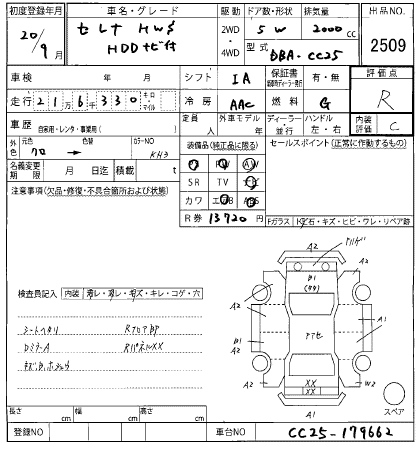 初度登録年月
20/9月
車名・グレード
セレナ HWS
HDDナビ付
駆動
2WD
4WD
ドア数・形状
5 W
排気量
2000 cc
型式
DBA-CC25
出品NO.
2509
車検 年 月
シフト
IA
保証書
有・無
評価点
R
走行 21万6千330 キロ・マイル
冷房
AAC
燃料
G
車歴
自家用・レンタ・事業用( )
定員
人
外車モデル
年
ディーラー・並行
ハンドル
左・右
内装評価
C
外色
元色
クロ
色替
カラーNO
KH3
装備品(純正品に限る)
セールスポイント(正常に作動するもの)
名義変更期限 月 日迄
積載 t
PS PW AW
SR TV
カワ エアB ABS
R券 13720円
注意事項(欠品・修復・不具合箇所および状態)
Fガラス 飛石・キズ・ヒビ・ワレ・リペア跡
検査員記入
内装 汚レ・濡レ・キズ・キレ・コゲ・穴
シートヘタリ
DミラーA
RフロアBP
RパネルXX
A2
A2
A2
B1
A2
A1
B1
A2
A2
XX
XX
W2
A1
スペア
長さ cm
幅 cm
高さ cm
登録NO
車台NO
CC25-179662